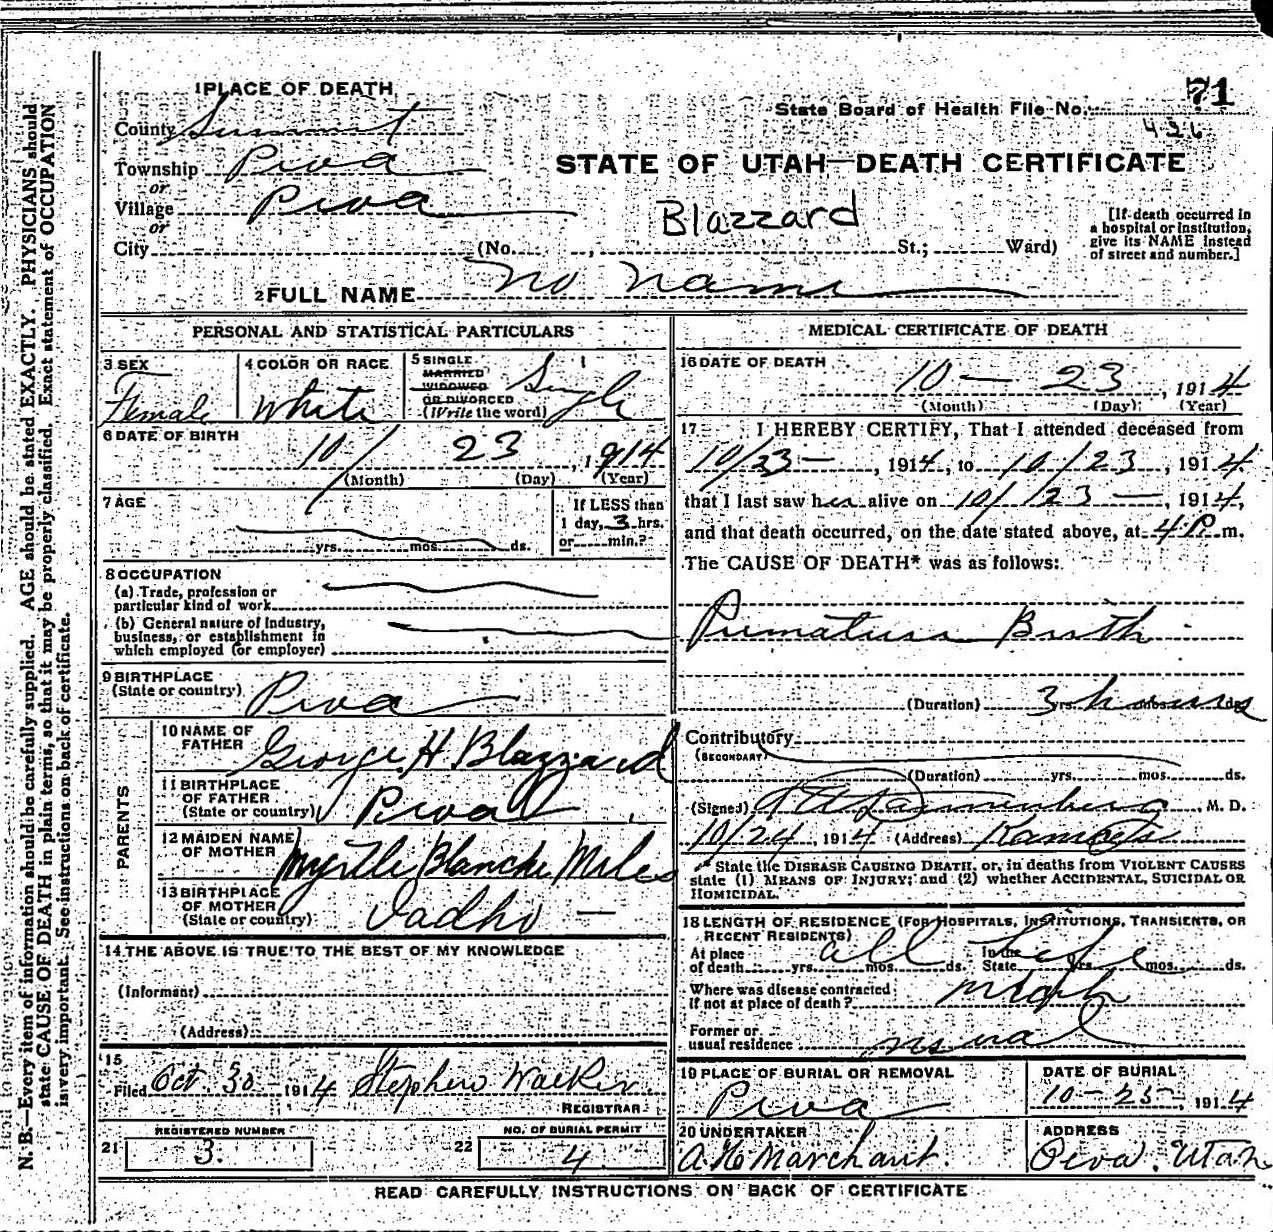 71
1 PLACE OF DEATH
State Board of Health File No.
County Summit
436
Township Peoa
STATE OF UTAH—DEATH CERTIFICATE
or
Village Peoa
or
Blazzard
City (No. , St.; Ward)
[If death occurred in
a hospital or institution,
give its NAME instead
of street and number.]
2 FULL NAME No name
PERSONAL AND STATISTICAL PARTICULARS
3 SEX
Female
4 COLOR OR RACE
White
5 SINGLE
MARRIED
WIDOWED
OR DIVORCED
(Write the word)
Single
6 DATE OF BIRTH
10/ 23, 1914
(Month) (Day) (Year)
7 AGE
yrs. mos. ds.
If LESS than
1 day, 3 hrs.
or min.?
8 OCCUPATION
(a) Trade, profession or
particular kind of work
(b) General nature of industry,
business, or establishment in
which employed (or employer)
9 BIRTHPLACE
(State or country) Peoa
PARENTS
10 NAME OF
FATHER George H Blazzard
11 BIRTHPLACE
OF FATHER
(State or country) Peoa
12 MAIDEN NAME
OF MOTHER Myrtle Blanche Miles
13 BIRTHPLACE
OF MOTHER
(State or country) Iadho —
14 THE ABOVE IS TRUE TO THE BEST OF MY KNOWLEDGE
(Informant)
(Address)
15
Filed Oct. 30 - 1914 Stephen Walker
REGISTRAR
REGISTERED NUMBER
21 3.
NO. OF BURIAL PERMIT
22 4
MEDICAL CERTIFICATE OF DEATH
16 DATE OF DEATH
10 — 23, 1914
(Month) (Day) (Year)
17 I HEREBY CERTIFY, That I attended deceased from
10/23 —, 1914, to 10/23, 1914
that I last saw her alive on 10/23 —, 1914,
and that death occurred, on the date stated above, at 4 P. m.
The CAUSE OF DEATH* was as follows:
Premature Birth
(Duration) 3 yrs. hours mos. ds.
Contributory
(SECONDARY)
(Duration) yrs. mos. ds.
(Signed) M. D.
10/24, 1914 (Address) Kamas
* State the DISEASE CAUSING DEATH, or, in deaths from VIOLENT CAUSES
state (1) MEANS OF INJURY; and (2) whether ACCIDENTAL, SUICIDAL OR
HOMICIDAL.
18 LENGTH OF RESIDENCE (FOR HOSPITALS, INSTITUTIONS, TRANSIENTS, OR
RECENT RESIDENTS)
At place
of death yrs. all mos. ds.
In the
State yrs. life mos. ds.
Where was disease contracted
if not at place of death?
Former or
usual residence
19 PLACE OF BURIAL OR REMOVAL
Peoa
DATE OF BURIAL
10-25-, 1914
20 UNDERTAKER
A H Marchant.
ADDRESS
Peoa. Utah
READ CAREFULLY INSTRUCTIONS ON BACK OF CERTIFICATE
N. B.—Every item of information should be carefully supplied. AGE should be stated EXACTLY. PHYSICIANS should
state CAUSE OF DEATH in plain terms, so that it may be properly classified. Exact statement of OCCUPATION
is very important. See instructions on back of certificate.